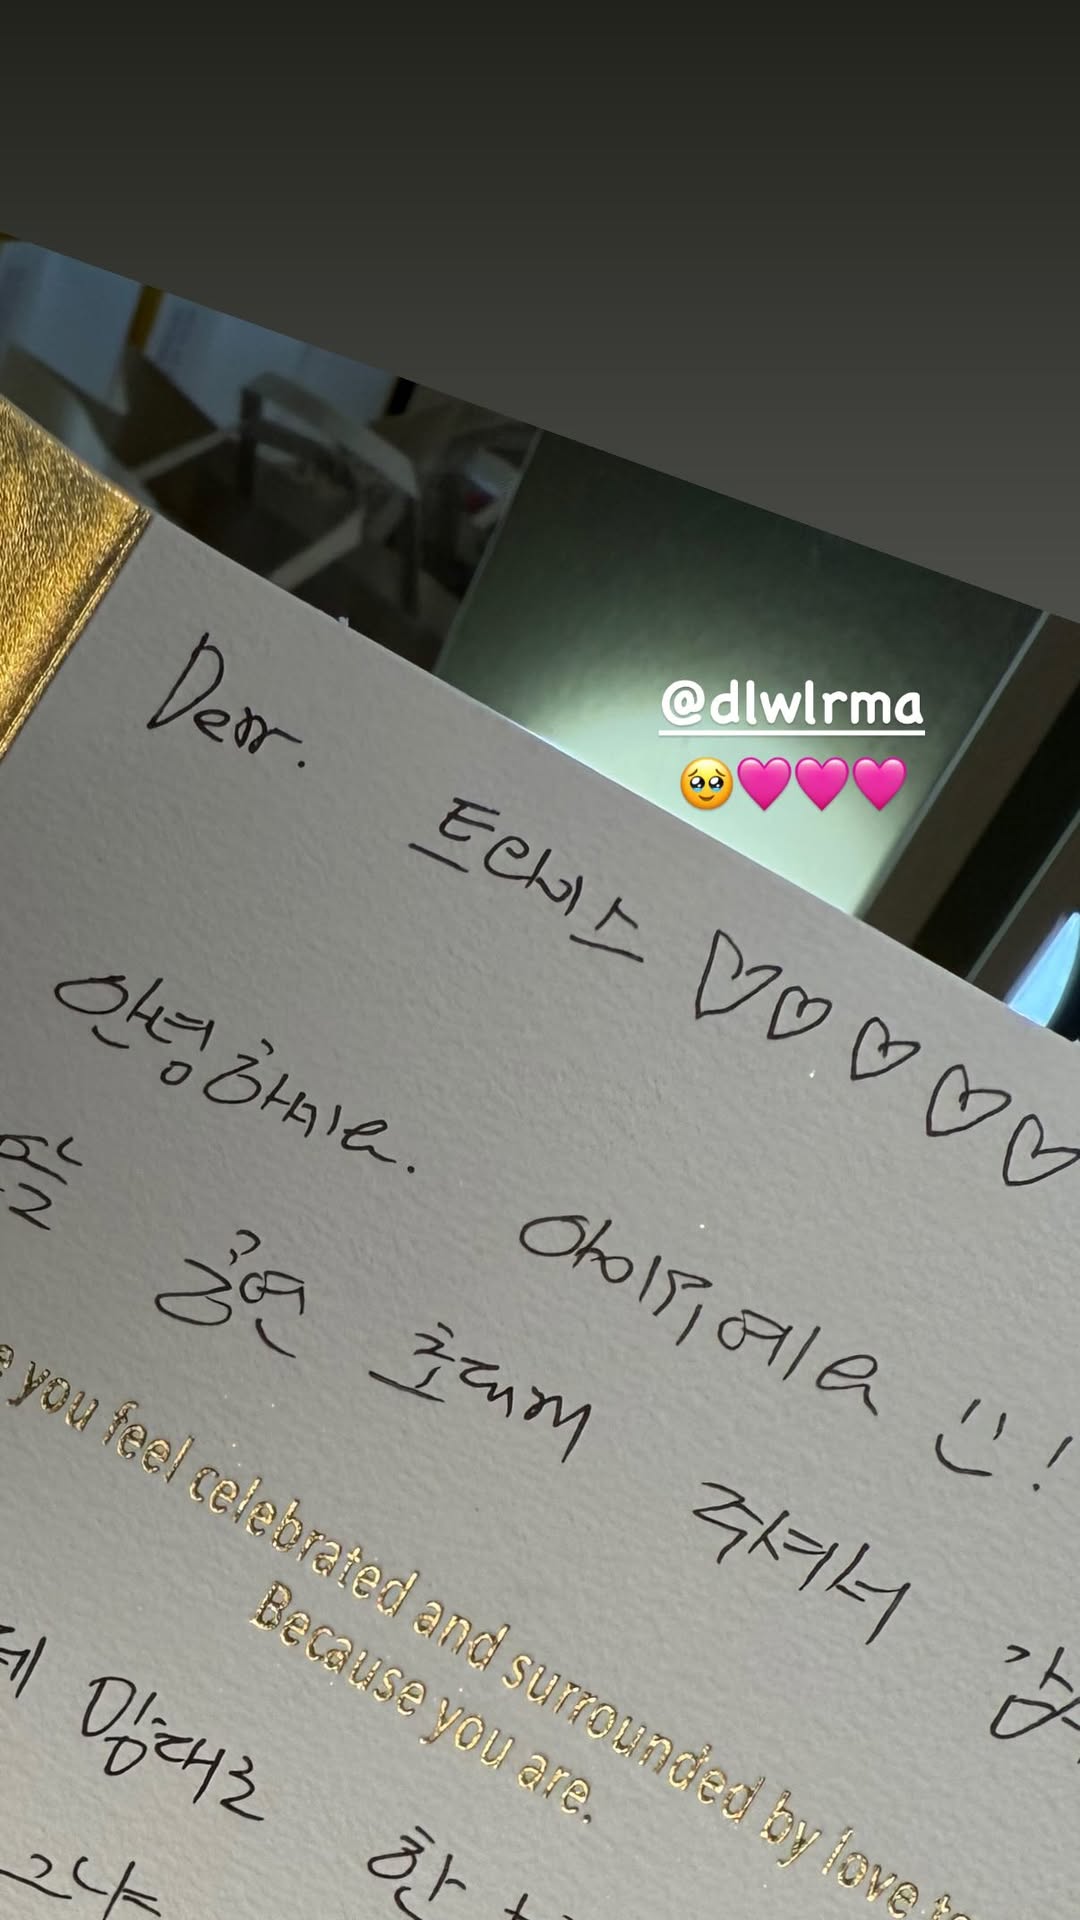 @dlwlrma
🥹🩷🩷🩷
Dear. 트와이스 ♡♡♡♡♡
안녕하세요. 아이유예요 :) !
을 공연 초대해 주셔서 감
you feel celebrated and surrounded by love to
Because you are.
맘대로 한
그냥